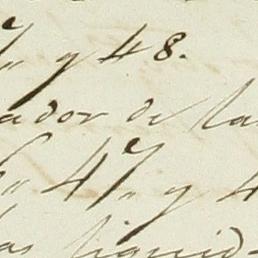 7,, y 48.
ador de las
6,, 47,, y 4
las liquid